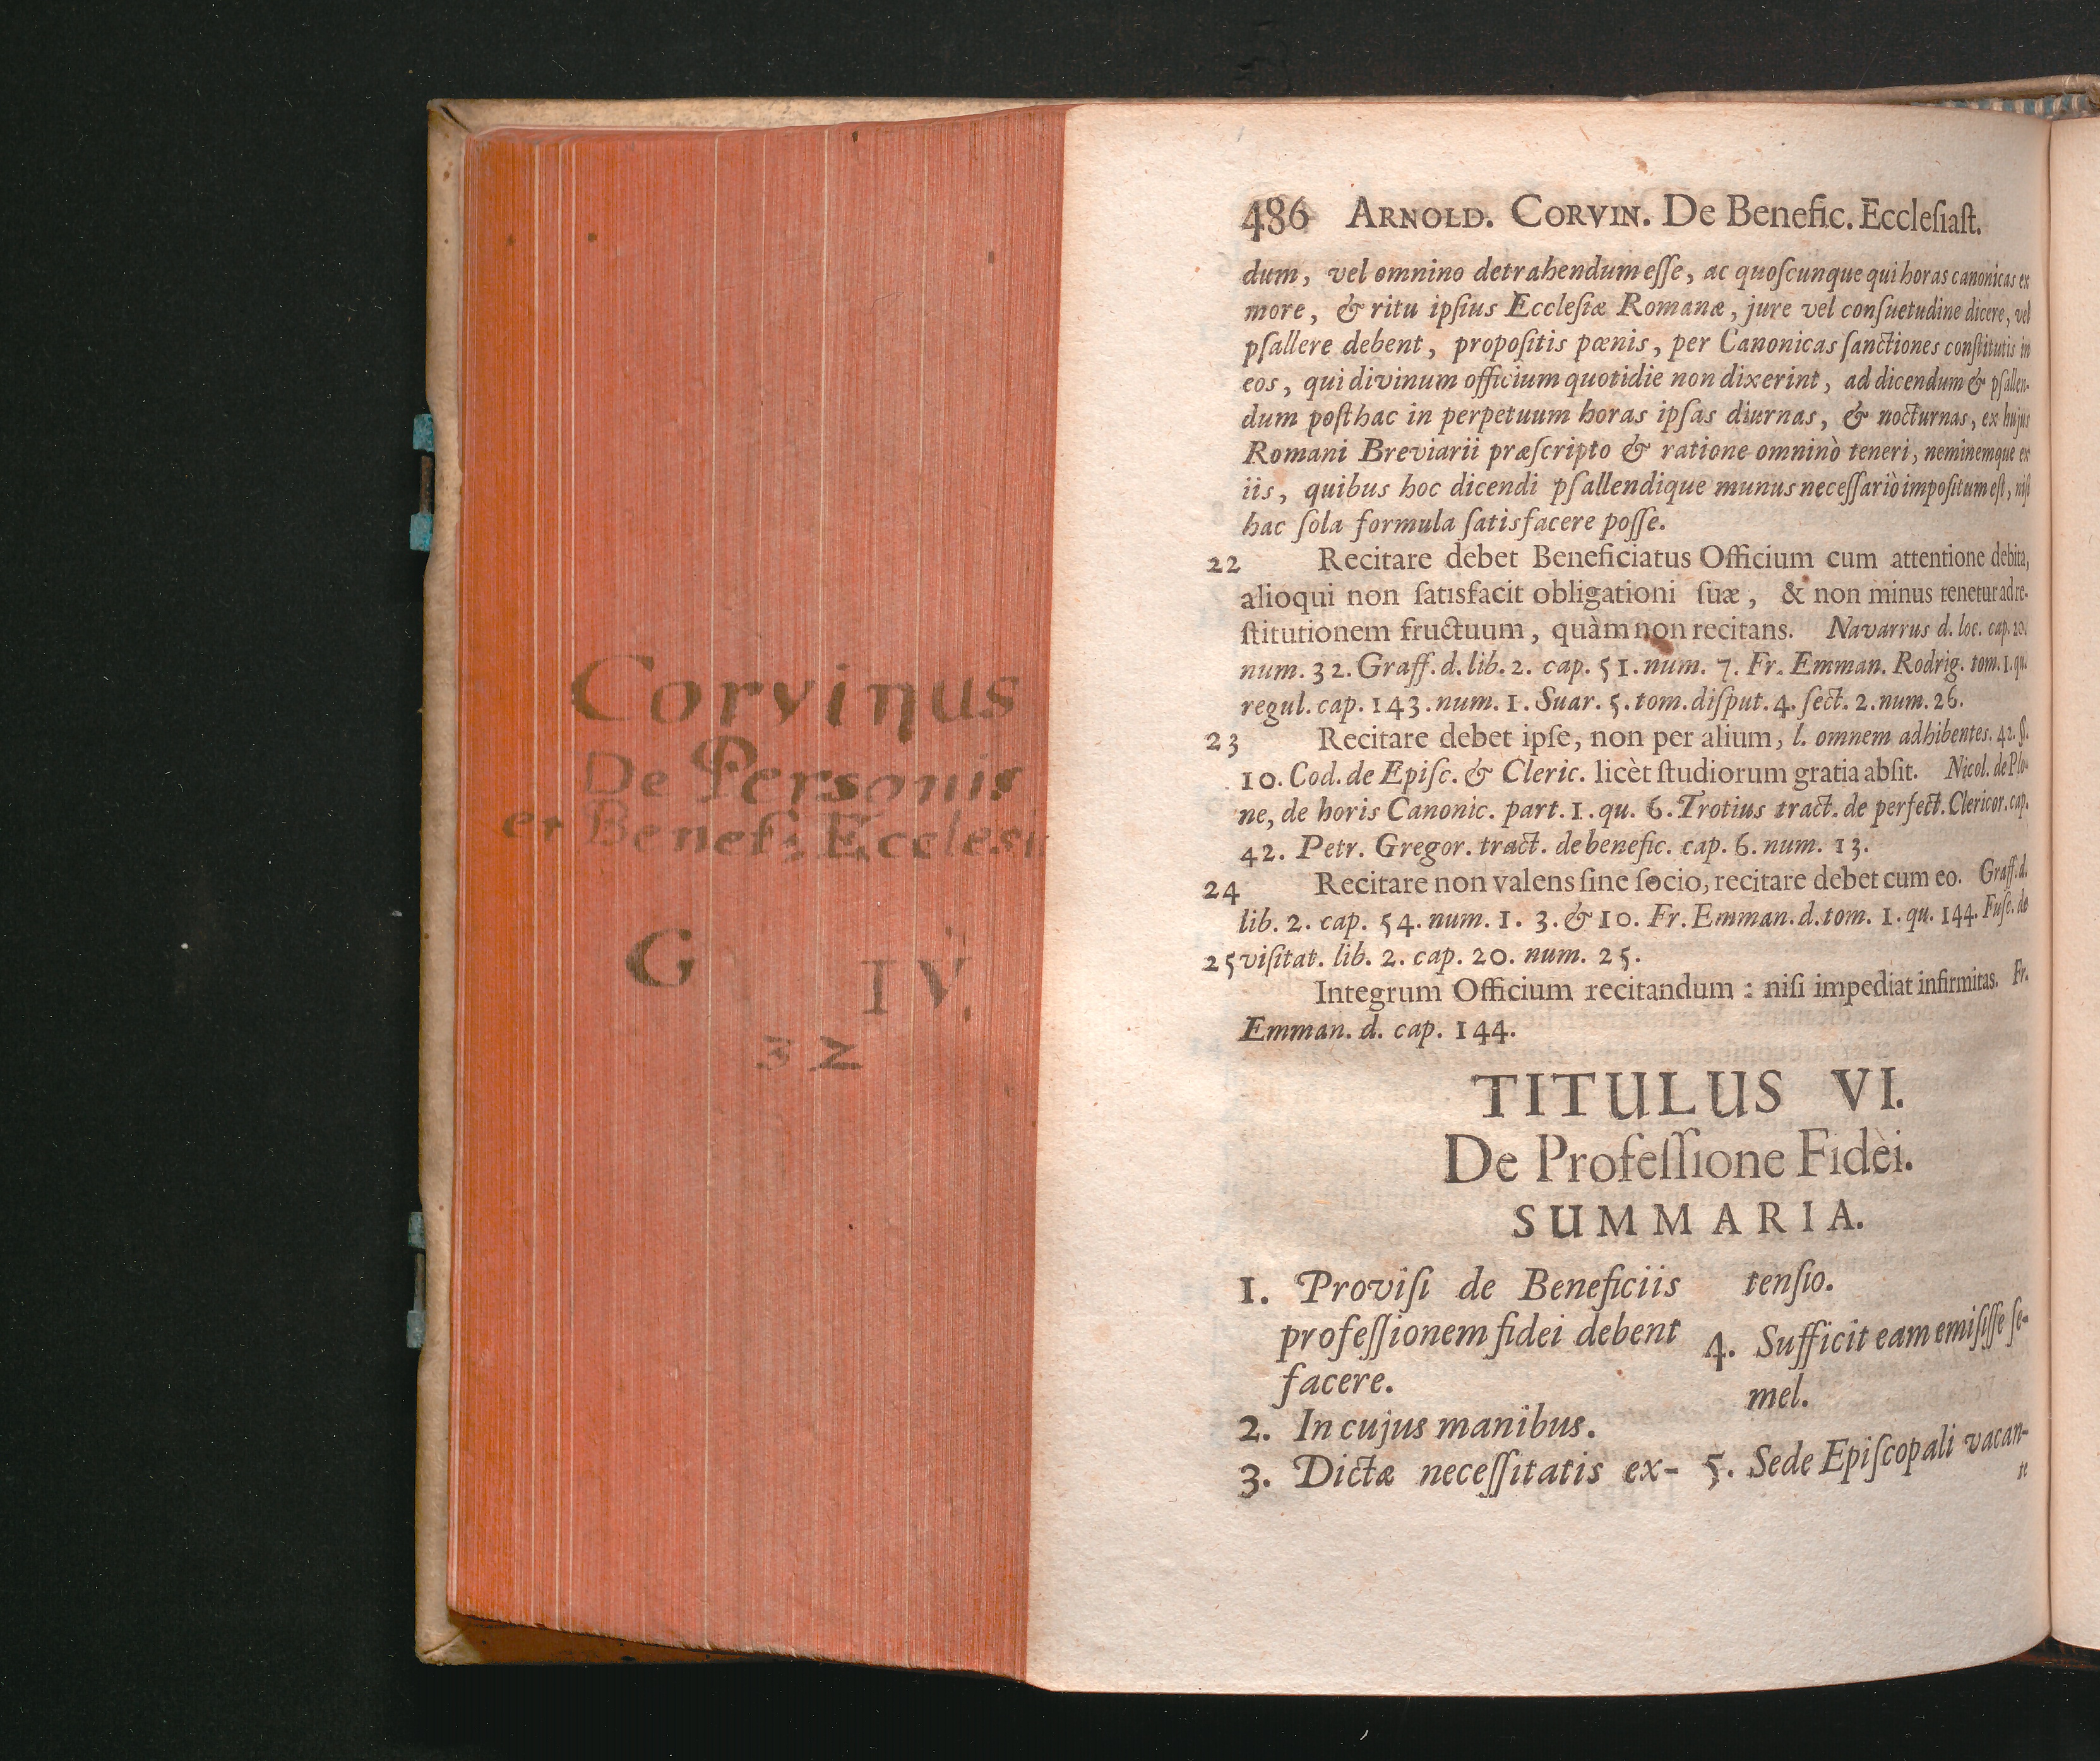 Corvinus
De Personis
et Benef: Ecclesi
G IV.
32
486 ARNOLD. CORVIN. De Benefic. Ecclesiast.
dum, vel omnino detrahendum esse, ac quoscunque qui horas canonicas ex
more, & ritu ipsius Ecclesiæ Romanæ, jure vel consuetudine dicere, vel
psallere debent, propositis pœnis, per Canonicas sanctiones constitutis in
eos, qui divinum officium quotidie non dixerint, ad dicendum & psallen-
dum posthac in perpetuum horas ipsas diurnas, & nocturnas, ex hujus
Romani Breviarii præscripto & ratione omninò teneri, neminemque ex
iis, quibus hoc dicendi psallendique munus necessariò impositum est, nisi
hac sola formula satisfacere posse.
22 Recitare debet Beneficiatus Officium cum attentione debita,
alioqui non satisfacit obligationi suæ, & non minus tenetur ad re-
stitutionem fructuum, quàm non recitans. Navarrus d. loc. cap. 20.
num. 32. Graff. d. lib. 2. cap. 51. num. 7. Fr. Emman. Rodrig. tom. 1. qu.
regul. cap. 143. num. 1. Suar. 5. tom. disput. 4. sect. 2. num. 26.
23 Recitare debet ipse, non per alium, l. omnem adhibentes. 42. §.
10. Cod. de Episc. & Cleric. licèt studiorum gratia absit. Nicol. de Plo-
ne, de horis Canonic. part. 1. qu. 6. Trotius tract. de perfect. Clericor. cap.
42. Petr. Gregor. tract. de benefic. cap. 6. num. 13.
24 Recitare non valens sine socio, recitare debet cum eo. Graff. d.
lib. 2. cap. 54. num. 1. 3. & 10. Fr. Emman. d. tom. 1. qu. 144. Fusc. de
25 visitat. lib. 2. cap. 20. num. 25.
Integrum Officium recitandum : nisi impediat infirmitas. Fr.
Emman. d. cap. 144.
TITULUS VI.
De Professione Fidèi.
SUMMARIA.
1. Provisi de Beneficiis
professionem fidei debent
facere.
2. In cujus manibus.
3. Dictæ necessitatis ex-
tensio.
4. Sufficit eam emisisse se-
mel.
5. Sede Episcopali vacan-
te